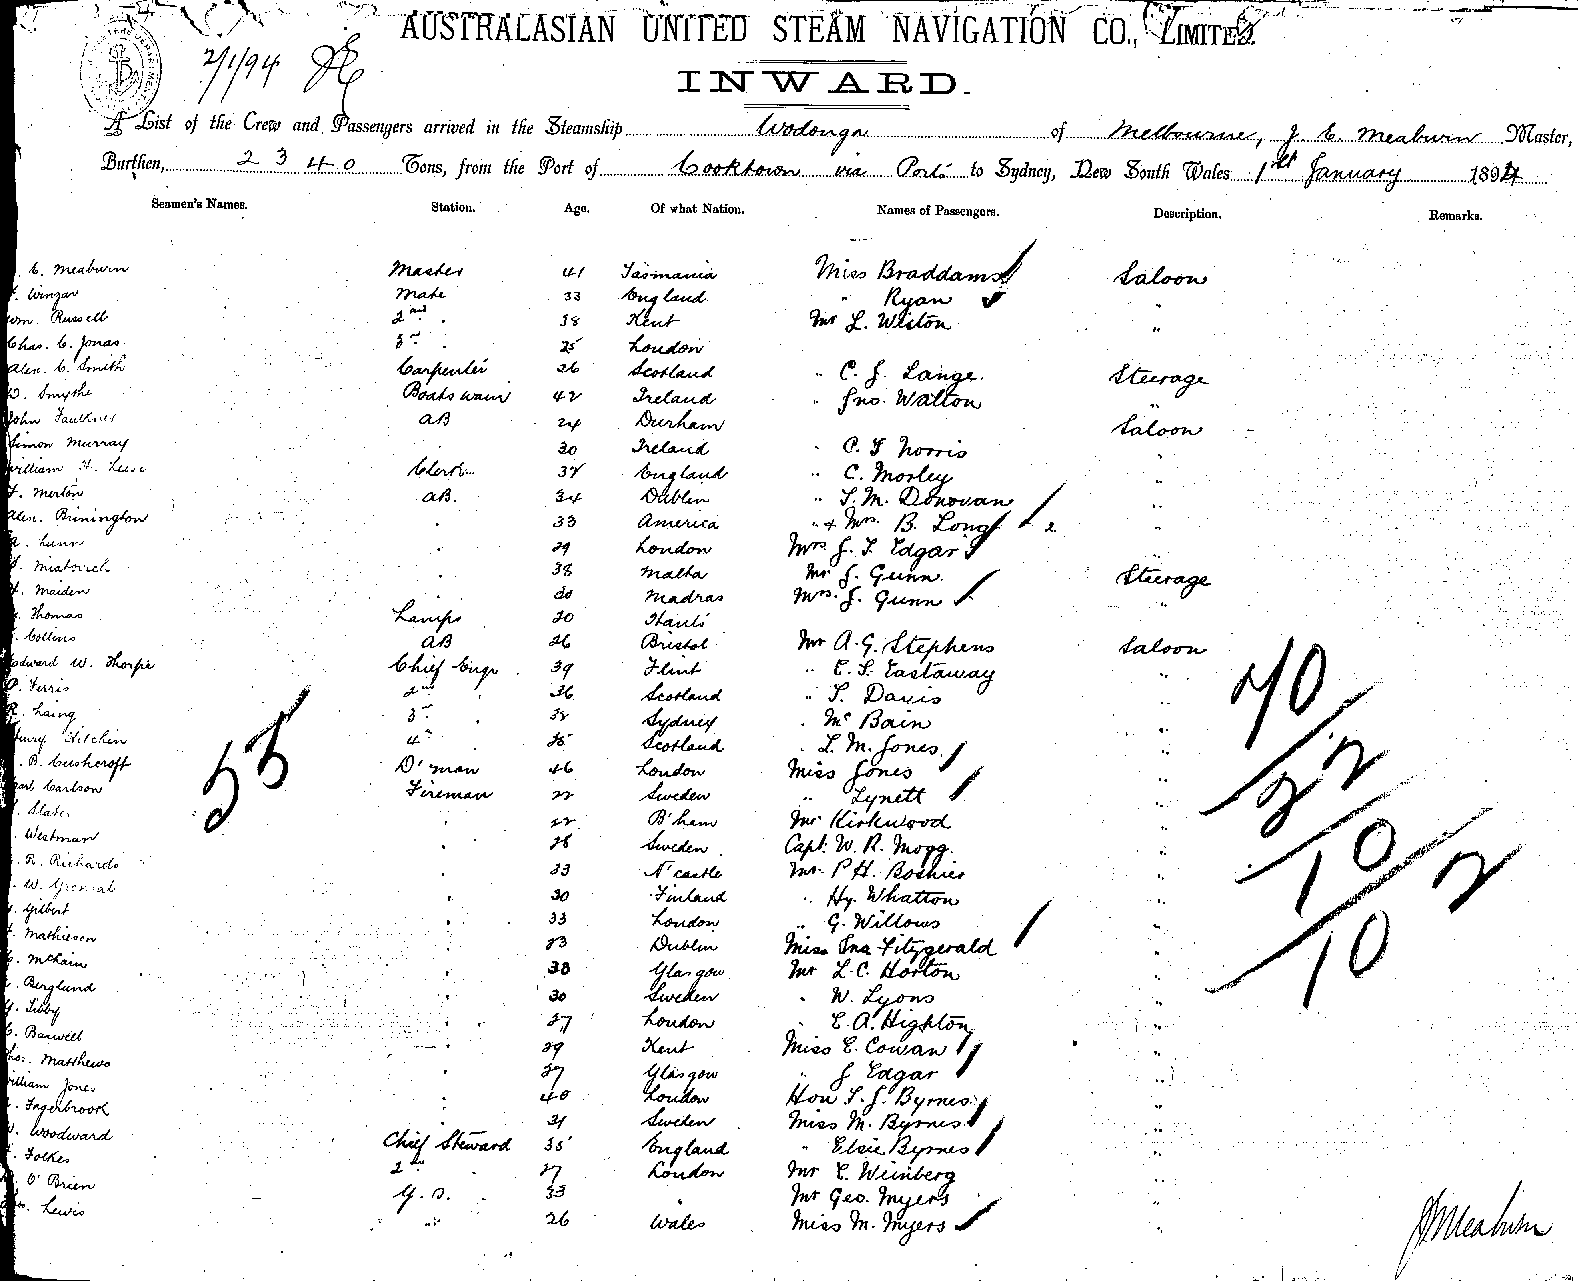 AUSTRALASIAN UNITED STEAM NAVIGATION CO., LIMITED.
2/1/94
INWARD.
A List of the Crew and Passengers arrived in the Steamship Wodonga of Melbourne, J. C. Meaburn Master,
Burthen, 2340 Tons, from the Port of Cooktown via Ports to Sydney, New South Wales 1st January 1894
Seamen's Names. Station. Age. Of what Nation. Names of Passengers. Description. Remarks.
C. Meaburn Master 41 Tasmania Miss Braddams Saloon
Winzar Mate 33 England " Ryan "
Wm. Russell 2nd 38 Kent Mr L. Weston "
Chas. C. Jonas 3rd 25 London
Alex. C. Smith Carpenter 26 Scotland " C. J. Lange. Steerage
D. Smythe Boatswain 42 Ireland " Jno. Walton "
John Faulkner AB 24 Durham Saloon
Simon Murray 30 Ireland " P. F Norris "
William H. Leese Clerk 37 England " C. Morley "
F. Merton AB. 34 Dublin " T. M. Donovan "
Alex. Binington " 33 America " & Mrs. B. Long 2 "
A. Lunn " 29 London Mrs J. T. Edgar "
" 38 Malta Mr J. Gunn. Steerage
H. Maiden " 30 Madras Mrs. J. Gunn "
Thomas Lamps 20 Hants
Collins AB 26 Bristol Mr A. G. Stephens Saloon
Edward W. Thorpe Chief Engr 39 Flint " E. S. Eastaway "
P. Ferris 2nd " 36 Scotland " T. Davis "
R. Laing 3rd " 38 Sydney " Mc Bain "
Henry Hitchin 4th " 25 Scotland " L. M. Jones "
B. Cushcroft D'man 46 London Miss Jones "
Carl Carlson Fireman 22 Sweden " Lynett "
Slater " 22 B'ham Mr Kirkwood "
Westman " 28 Sweden Capt. W. R. Mogg. "
R. Richards " 33 N'castle Mr. P H. Boshier "
W. " 30 Finland " Hy. Whatton "
Gilbert " 33 London " G. Willows "
Mathieson " 23 Dublin Miss Ina Fitzgerald "
McKain " 38 Glasgow Mr L. C. Horton "
Berglund " 30 Sweden " W. Lyons "
Libby " 27 London " E. A. Highton "
C. Barwell " 29 Kent Miss E. Cowan "
Thos. Matthews " 27 Glasgow " J Edgar "
William Jones " 40 London Hon T. J. Byrnes "
Ingerbrook " 31 Sweden Miss M. Byrnes "
Woodward Chief Steward 35 England " Elsie Byrnes "
Folkes 2nd " 27 London Mr E. Weinberg "
O'Brien G. S. 33 " Mr Geo. Myers "
Lewis " 26 Wales Miss M. Myers "
40
22
10 2
10
J. C. Meaburn